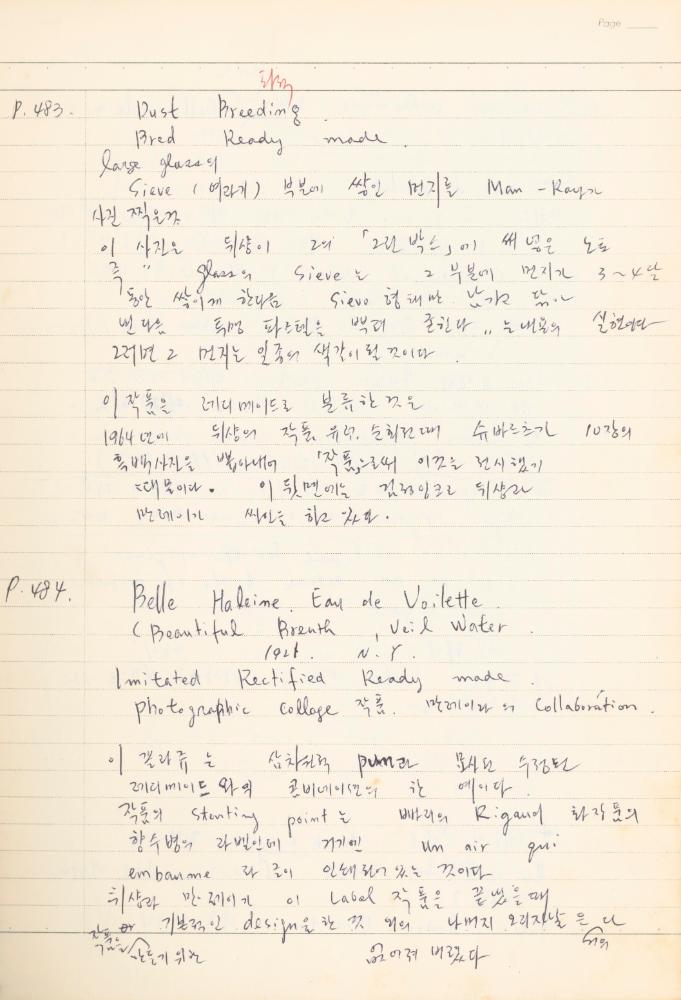 Page
P. 483. Dust Breeding.
Bred Ready made.
large glass의
Sieve (여과기) 부분에 쌓인 먼지를 Man-Ray가
사진 찍은것
이 사진은 뒤샹이 그의 「그린 박스」에 써 넣은 노트
즉 " glass의 Sieve는 그 부분에 먼지가 3~4달
동안 쌓이게 한다음 Sieve 형태만 남기고 닦아
낸 다음 투명 파스텔을 준한다 " 는 내용의 실현이다
그러면 그 먼지는 일종의 색갈이 될 것이다.
이 작품은 레디메이드로 분류한 것은
1964년에 뒤샹의 작품 순회전때 슈바르츠가 10장의
흑백사진을 뽑아내어 「작품」으로써 이것을 전시했기
때문이다. 이 뒷면에는 검정잉크로 뒤샹과
만레이가 싸인을 하고 있다.
P. 484. Belle Haleine. Eau de Voilette.
(Beautiful Breath, Veil Water.
1921. N.Y.
Imitated Rectified Ready made.
photographic collage 작품. 만레이와의 Collaboration.
이 꼴라쥬는 삼차원적 pun과 모사된 수정된
레디메이드와의 콘비네이션의 한 예이다.
작품의 starting point는 빠리의 Rigaud 화장품의
향수병의 라벨인데 거기엔 un air qui
embaume 라 글이 인쇄되어 있는 것이다
뒤샹과 만레이가 이 Label 작품을 끝냈을때
작품을 만들기 위한 기본적인 design을 한 것 외의 나머지 오리지날은 다
없어져 버렸다